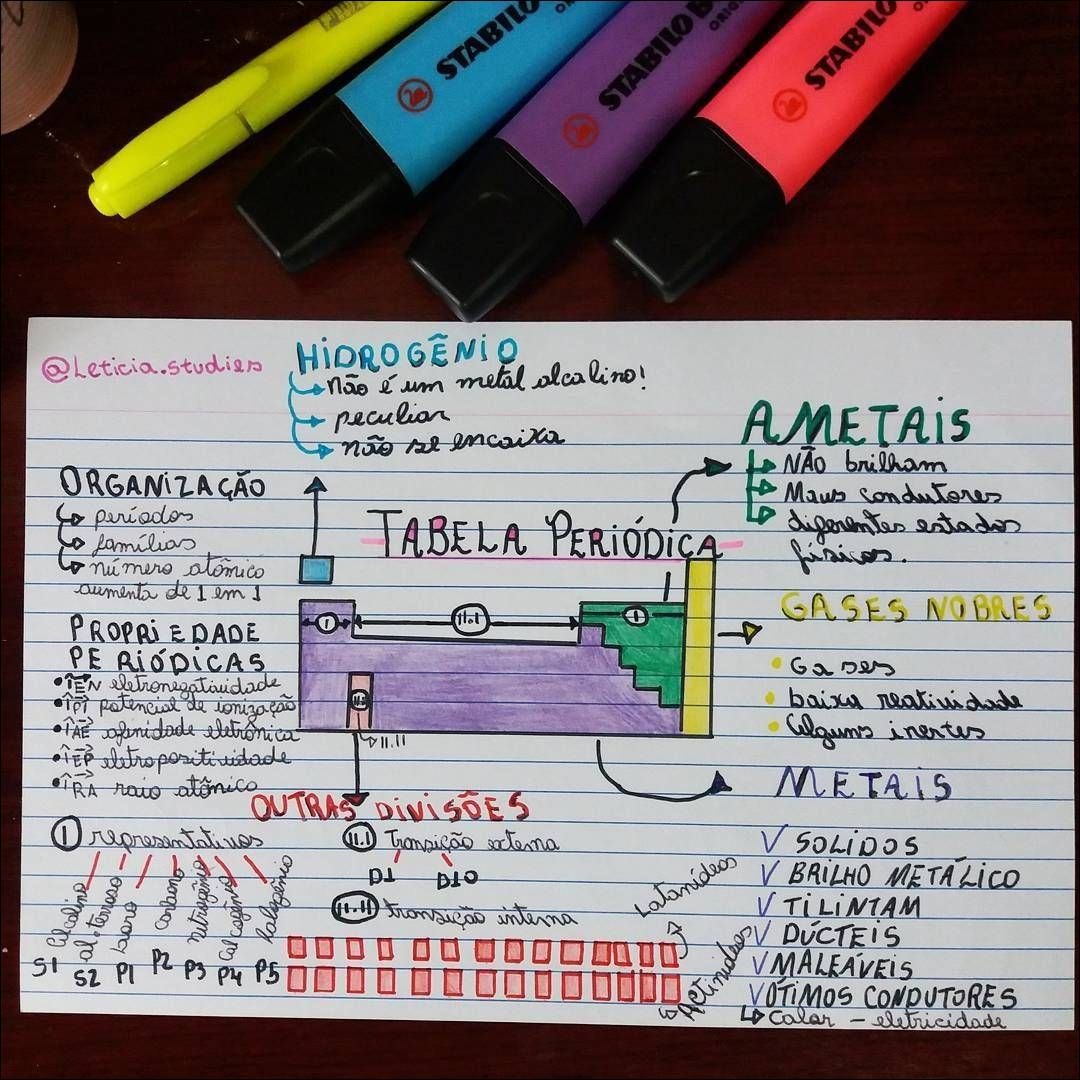 STABILO
STABILO B
ORIG
STABILO B
ORIGI
@Leticia.studies
HIDROGÊNIO
não é um metal alcalino!
peculiar
não se encaixa
AMETAIS
NÃO brilham
Maus condutores
diferentes estados
físicos.
ORGANIZAÇÃO
períodos
famílias
número atômico
aumenta de 1 em 1
TABELA PERIÓDICA
I
II.I
I
II.II
II.II
GASES NOBRES
Gases
baixa reatividade
Alguns inertes
PROPRIEDADE
PERIÓDICAS
EN eletronegatividade
PI potencial de ionização
AE afinidade eletrônica
EP eletropositividade
RA raio atômico
METAIS
SOLIDOS
BRILHO METÁLICO
TILINTAM
DÚCTEIS
MALEÁVEIS
ÓTIMOS CONDUTORES
calor - eletricidade
OUTRAS DIVISÕES
I representativos
Alcalino
al. terroso
boro
carbono
nitrogênio
Calcogênio
halogênio
S1 S2 P1 P2 P3 P4 P5
II.I Transição externa
D1 D10
II.II transição interna
Latanídeos
Actinídeos